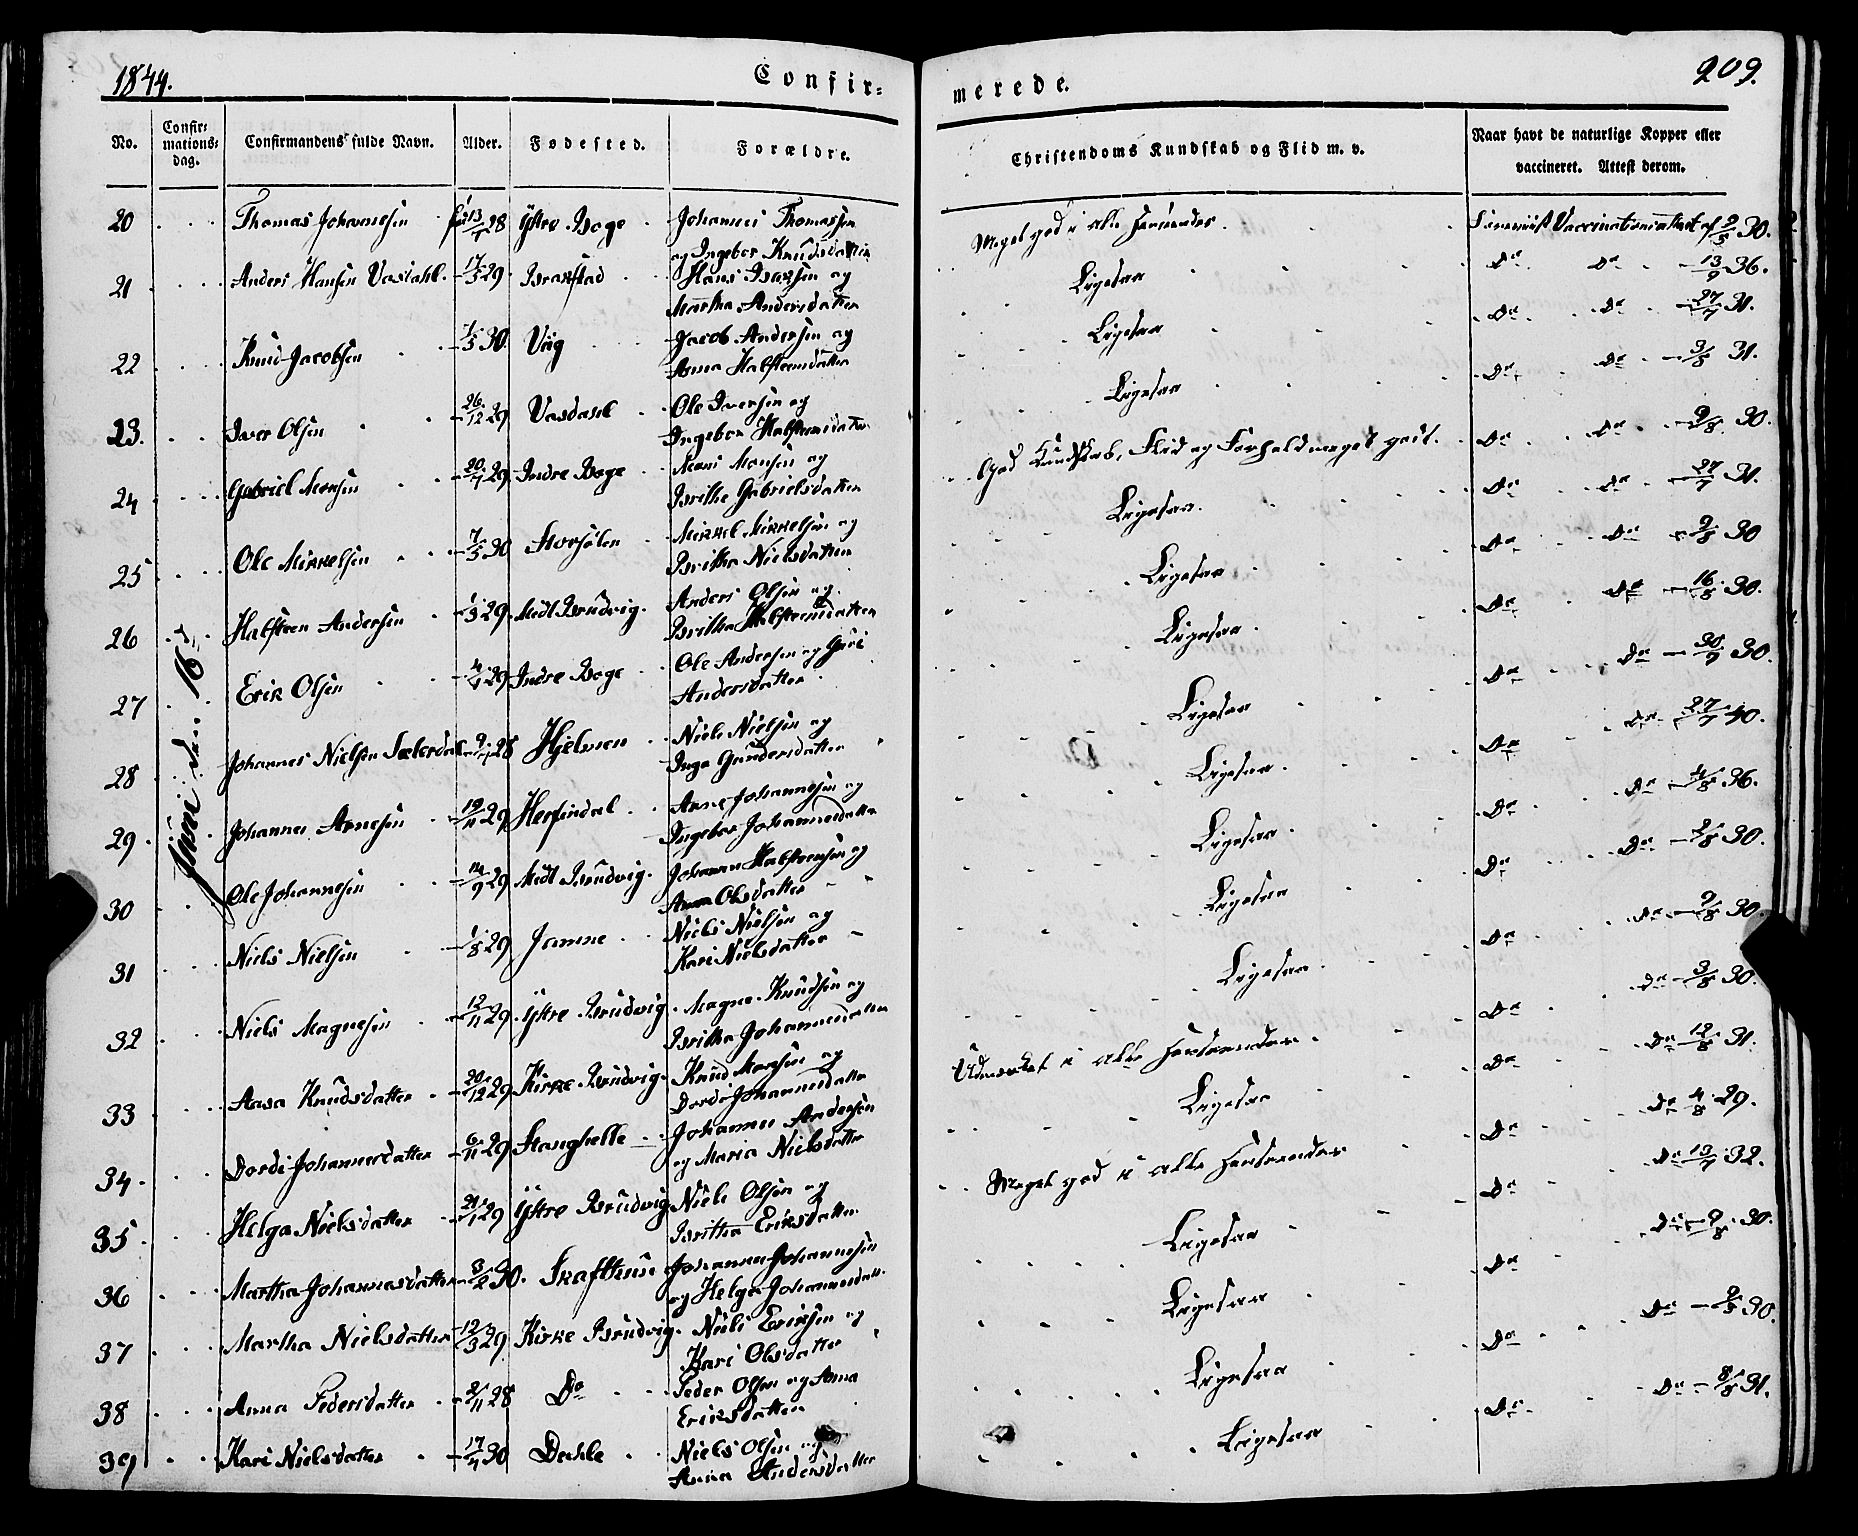 1844.
Confir=
merede.
209.
No.
Confir=
mations=
dag.
Confirmandens fulde Navn.
Alder.
Fødested.
Forældre.
Christendoms Kundskab og Flid m. v.
Naar havt de naturlige Kopper eller
vaccineret. Attest derom.
Juni den 16de
20 Thomas Johannesen 28 Ystre Boge Johannes Thomassen
og Ingebor Knudsdatter
Meget god i alle Henseender. Vaccinationsattest af 2/5 30.
21 Anders Hansen 17/5 29 Brakstad Hans og
Martha Andersdatter
Ligesaa Do Do 13/9 36.
22 Knud Jacobsen 7/5 30. Viig Jacob Andersen og
Anna Halsteensdatter
Ligesaa Do Do 27/7 31.
23. Iver Olsen 26/12 29 Vasdahl Ole Iversen og
Ingebor Halsteensdatter
Ligesaa Do Do 3/8 31.
24 Gabriel Monsen 20/7 29 Indre Boge Mons Monsen og
Brithe Gabrielsdatter
God Kundskab, Flid og Forhold meget godt. Do Do 9/8 30.
25 Ole Mikkelsen 7/5 30 Mikkel Mikkelsen og
Britha Nielsdatter
Ligesaa. Do Do 27/7 31.
26 Halsteen Andersen 29. Midt Brudvig. Anders Olsen og
Britha Halsteensdatter
Ligesaa Do Do 9/8 30
27 Erik Olsen 29 Indre Boge Ole Andersen og Guri
Andersdatter.
Ligesaa Do Do 16/8 30.
28 Johannes Nielsen 28 Hjelmen Niels Nielsen og
Inga Gundersdatter
Ligesaa Do Do 30/9 30.
29 Johannes Arnesen 19/11 29 Herfindal Arne Johannesen og
Ingebor Johannesdatter
Ligesaa Do Do 27/7 40.
30 Ole Johannesen 14/9 29 Midt Brudvig. Johannes Halsteensen og
Anna Olsdatter
Ligesaa Do Do 36.
31 Niels Nielsen 1/8 29 Jamne Niels Nielsen og
Kari Nielsdatter
Ligesaa Do Do 30.
32 Niels Magnesen 12/11 29. Ystre Brudvig. Magne Knudsen og
Britha Johannesdatter
Ligesaa Do Do 9/8 30.
33 Aasa Knudsdatter 20/12 29 Kirke Brudvig. Knud Monsen og
Dordi Johannesdatter
Udmærket i alle Henseender. Do Do 3/8 30.
34. Dordi Johannesdatter 6/11 29 Stanghelle Johannes Andersen
og Maria Nielsdatter
Ligesaa Do Do 12/8 31.
35 Helga Nielsdatter 21/1 29 Ystre Brudvig Niels Olsen og
Britha Eriksdatter
Meget god i alle Henseender Do Do 4/8 29.
36 Martha Johannesdatter 3/2 30. Johannes Johannesen
og Helga Johannesdatter
Ligesaa Do Do 13/7 32.
37 Martha Nielsdatter 12/3 29 Kirke Brudvig. Niels Eriksen og
Kari Olsdatter
Ligesaa Do Do 9/8 30.
38 Anna Pedersdatter 2/11 28 Do Peder Olsen og Anna
Eriksdatter
Ligesaa Do Do 30.
39 Kari Nielsdatter 17/4 30 Dahle Niels Olsen og
Anna Andersdatter
Ligesaa Do Do 8/8 31.